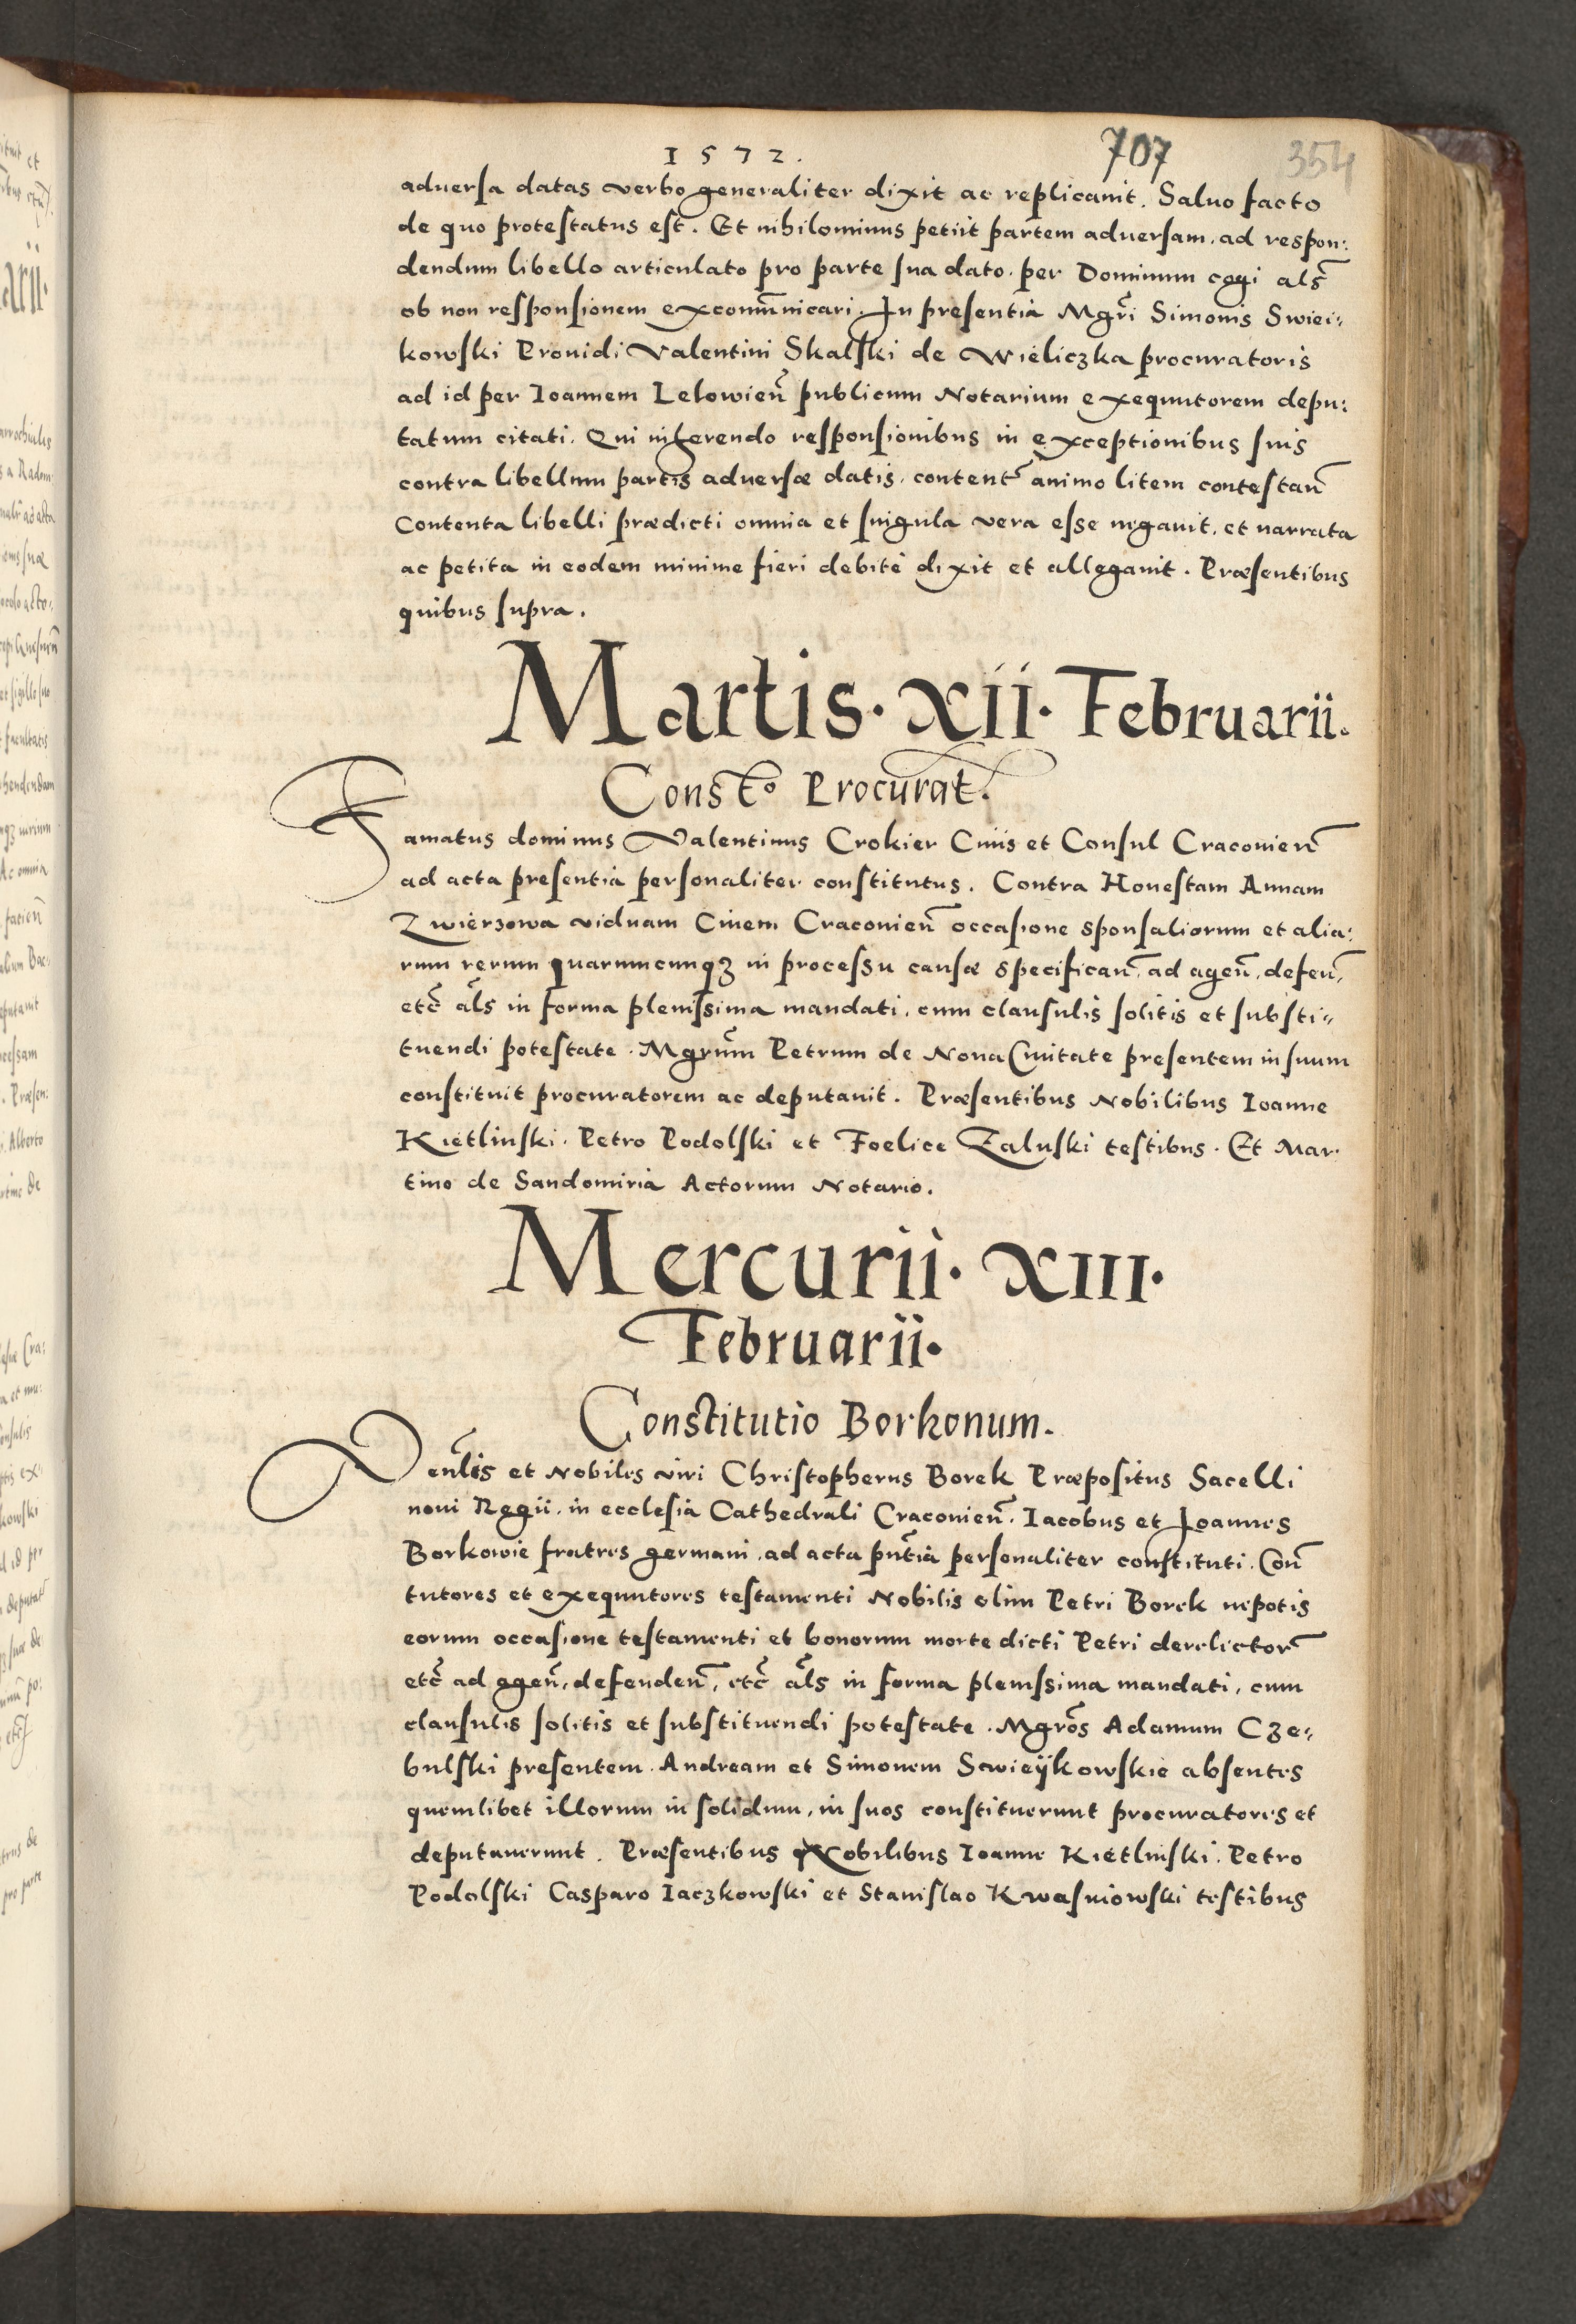 1572.
707
354
aduersa datas verbo generaliter dixit ac replicauit. Saluo facto
de quo protestatus est. Et nihilominus petiit partem aduersam, ad respon:
dendum libello articulato pro parte sua dato, per Dominum cogi als̃
ob non responsionem excom̃unicari. In presentia Mgr̃i Simonis Swiei:
kowski Prouidi Valentini Skalski de Wieliczka procuratoris
ad id per Ioannem Lelowieñ publicum Notarium exequutorem depu:
tatum citati. Qui inherendo responsionibus in exceptionibus suis
contra libellum partis aduersæ datis, content̃ animo litem contestañ
Contenta libelli prædicti omnia et singula vera esse negauit, et narrata
ac petita in eodem minime fieri debite dixit et allegauit. Præsentibus
quibus supra.
Martis. xii. Februarii.
Const̃o Procurat.
Famatus dominus Valentinus Crokier Ciuis et Consul Cracouieñ
ad acta presentia personaliter constitutus. Contra Honestam Annam
Zwierzowa viduam Ciuem Cracouieñ occasione sponsaliorum et alia:
rum rerum quarumcunqꝫ in processu causæ specificañ, ad ageñ, defeñ,
etc̃ al̃s in forma plenissima mandati, cum clausulis solitis et substi:
tuendi potestate. Mgrum̃ Petrum de Noua Ciuitate presentem in suum
constituit procuratorem ac deputauit. Præsentibus Nobilibus Ioanne
Kietlinski. Petro Podolski et Foelice Zaluski testibus. Et Mar:
tino de Sandomiria Actorum Notario.
Mercurii. XIII.
Februarii.
Constitutio Borkonum.
Veñlis et Nobiles viri Christopherus Borek Præpositus Sacelli
noui Regii, in ecclesia Cathedrali Cracouieñ. Iacobus et Ioannes
Borkowie fratres germani, ad acta pñtia personaliter constituti. Coñ
tutores et exequutores testamenti Nobilis olim Petri Borek nepotis
eorum occasione testamenti et bonorum morte dicti Petri derelictor̃
etc̃ ad ageñ, defendeñ, etc̃ al̃s in forma plenissima mandati, cum
clausulis solitis et substituendi potestate. Mgrõs Adamum Cze:
bulski presentem. Andream et Simonem Swieÿkowskie absentes
quemlibet illorum in solidum, in suos constituerunt procuratores et
deputauerunt. Præsentibus Nobilibus Ioanne Kietlinski. Petro
Podolski Casparo Iaczkowski et Stanislao Kwasniowski testibus